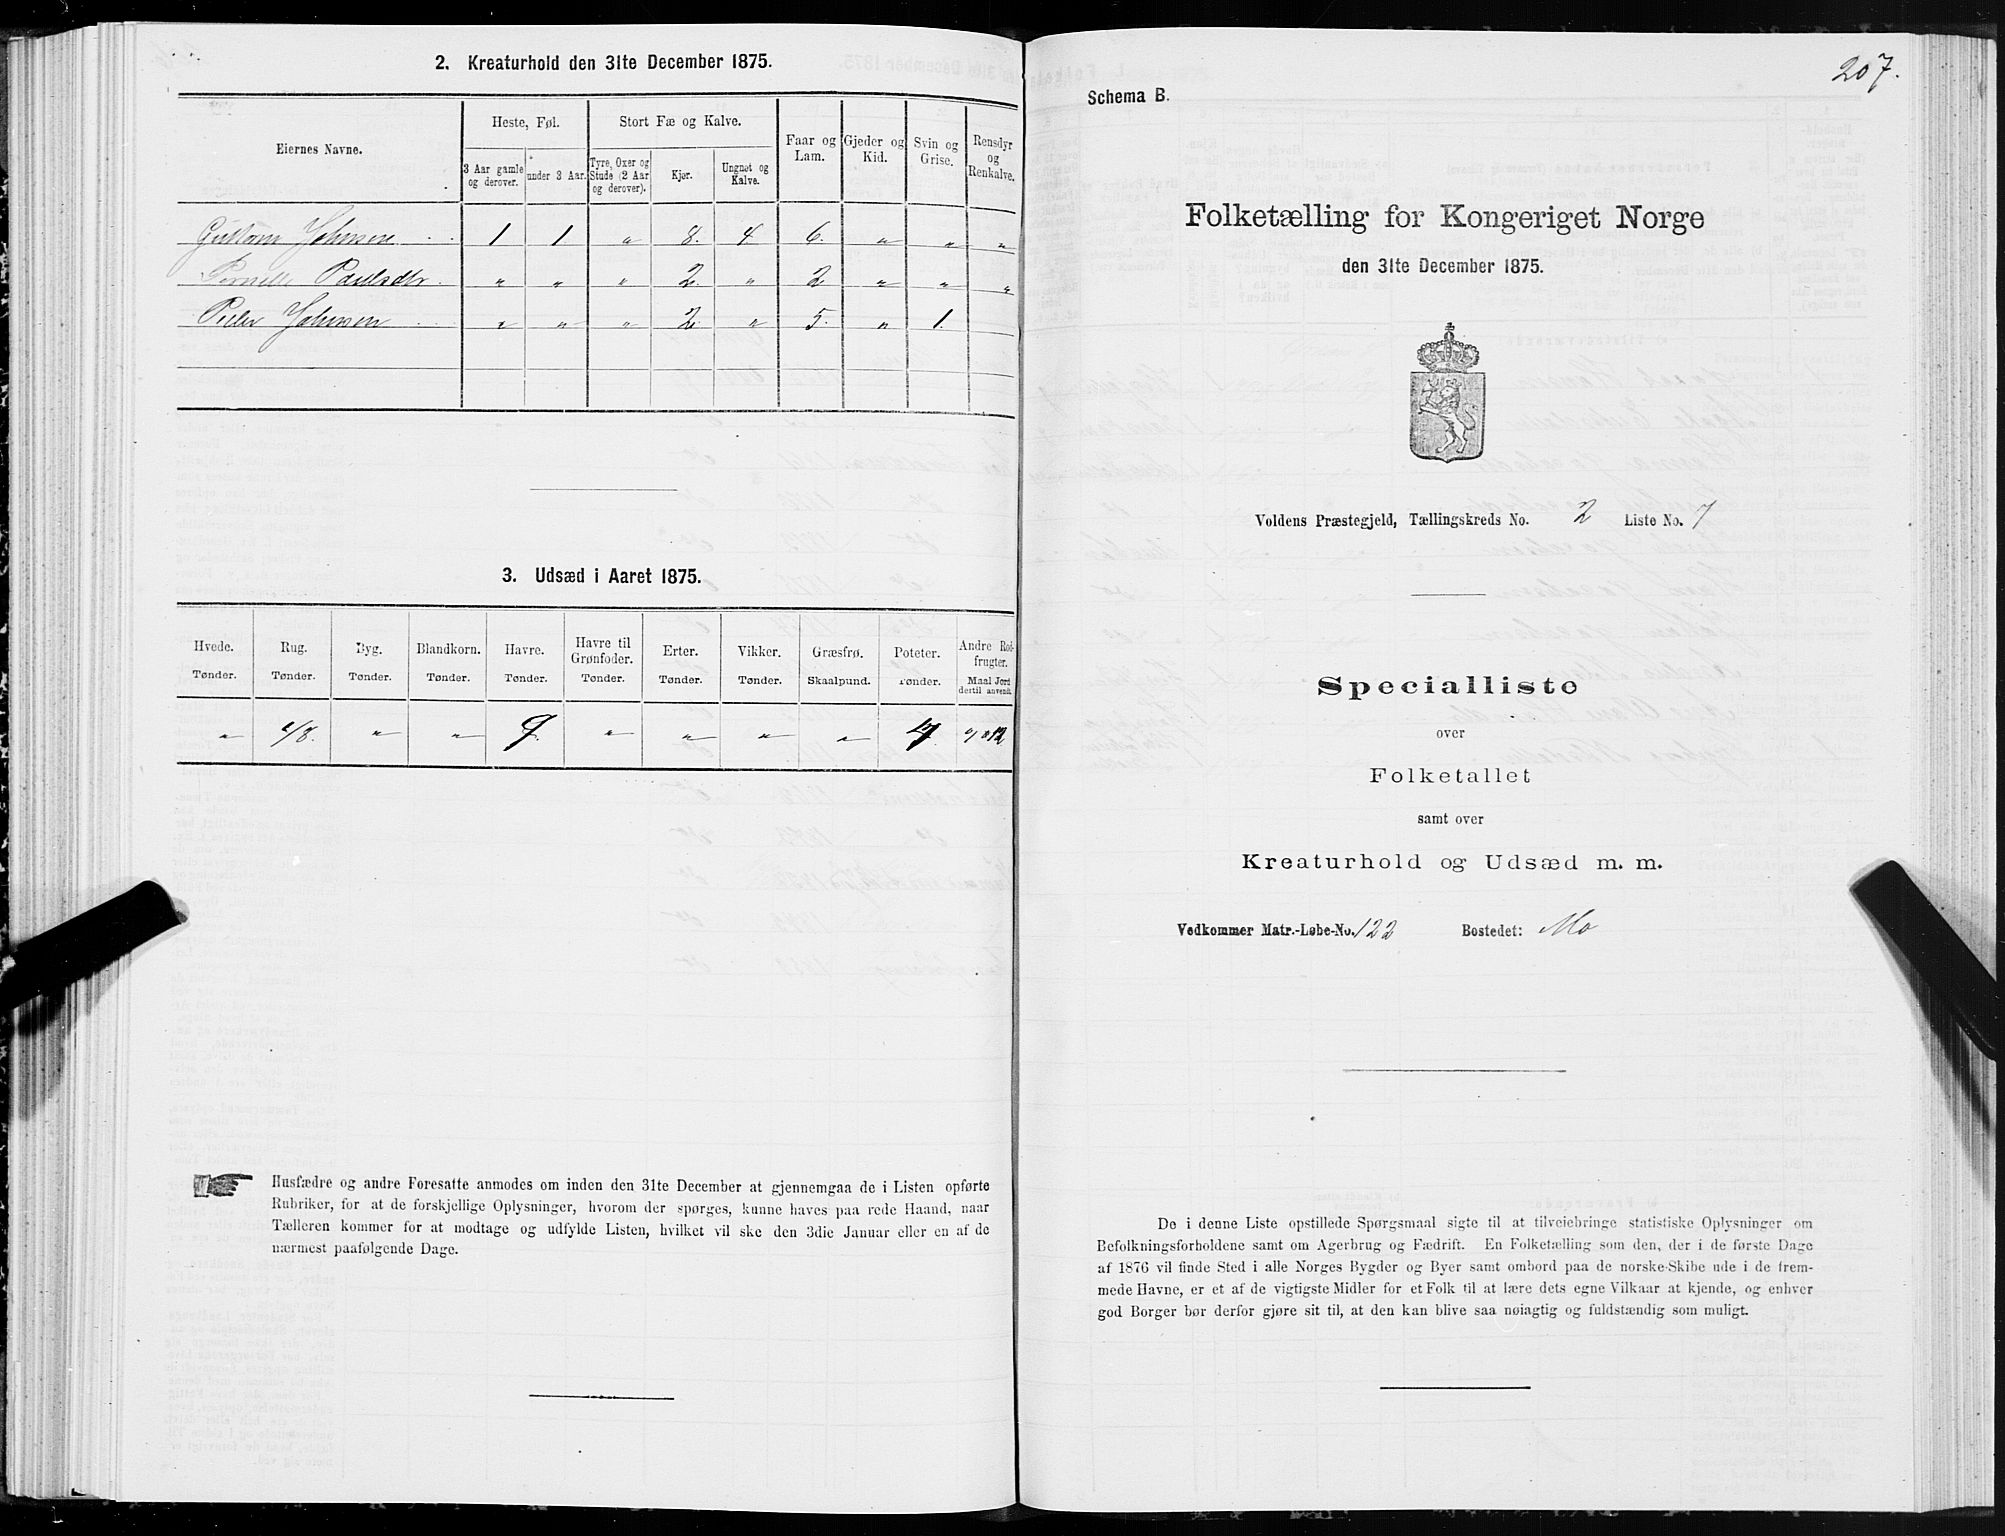 2. Kreaturhold den 31te December 1875.
Eiernes Navne.
Heste, Føl.
Stort Fæ og Kalve.
Faar og Lam.
Gjeder og Kid.
Svin og Grise.
Rensdyr og Renkalve.
3 Aar gamle og derover.
under 3 Aar.
Tyre, Oxer og Stude (2 Aar og derover).
Kjør.
Ungnøt og Kalve.
Johnsen 1 1 " 8. 4 6. " " "
Paulsdtr. " " " 2. " 2 " " "
Peder Johnsen " " " 2 " 5. " 1.
3. Udsæd i Aaret 1875.
Hvede. Rug. Byg. Blandkorn. Havre. Havre til Grønfoder. Erter. Vikker. Græsfrø. Poteter. Andre Rodfrugter.
Tønder. Tønder. Tønder. Tønder. Tønder. Tønder. Tønder. Tønder. Skaalpund. Tønder. Maal Jord dertil anvendt.
" /8. " " " " " "
Husfædre og andre Foresatte anmodes om inden den 31te December at gjennemgaa de i Listen opførte
Rubriker, for at de forskjellige Oplysninger, hvorom der spørges, kunne haves paa rede Haand, naar
Tælleren kommer for at modtage og udfylde Listen, hvilket vil ske den 3die Januar eller en af de
nærmest paafølgende Dage.
207.
Schema B.
Folketælling for Kongeriget Norge
den 31te December 1875.
Voldens Præstegjeld, Tællingskreds No. 2 Liste No. 7
Specialliste
over
Folketallet
samt over
Kreaturhold og Udsæd m. m.
Vedkommer Matr.-Løbe-No. 122 Bostedet: Mo
De i denne Liste opstillede Spørgsmaal sigte til at tilveiebringe statistiske Oplysninger om
Befolkningsforholdene samt om Agerbrug og Fædrift. En Folketælling som den, der i de første Dage
af 1876 vil finde Sted i alle Norges Bygder og Byer samt ombord paa de norske Skibe ude i de frem-
mede Havne, er et af de vigtigste Midler for et Folk til at lære dets egne Vilkaar at kjende, og enhver
god Borger bør derfor gjøre sit til, at den kan blive saa nøiagtig og fuldstændig som muligt.